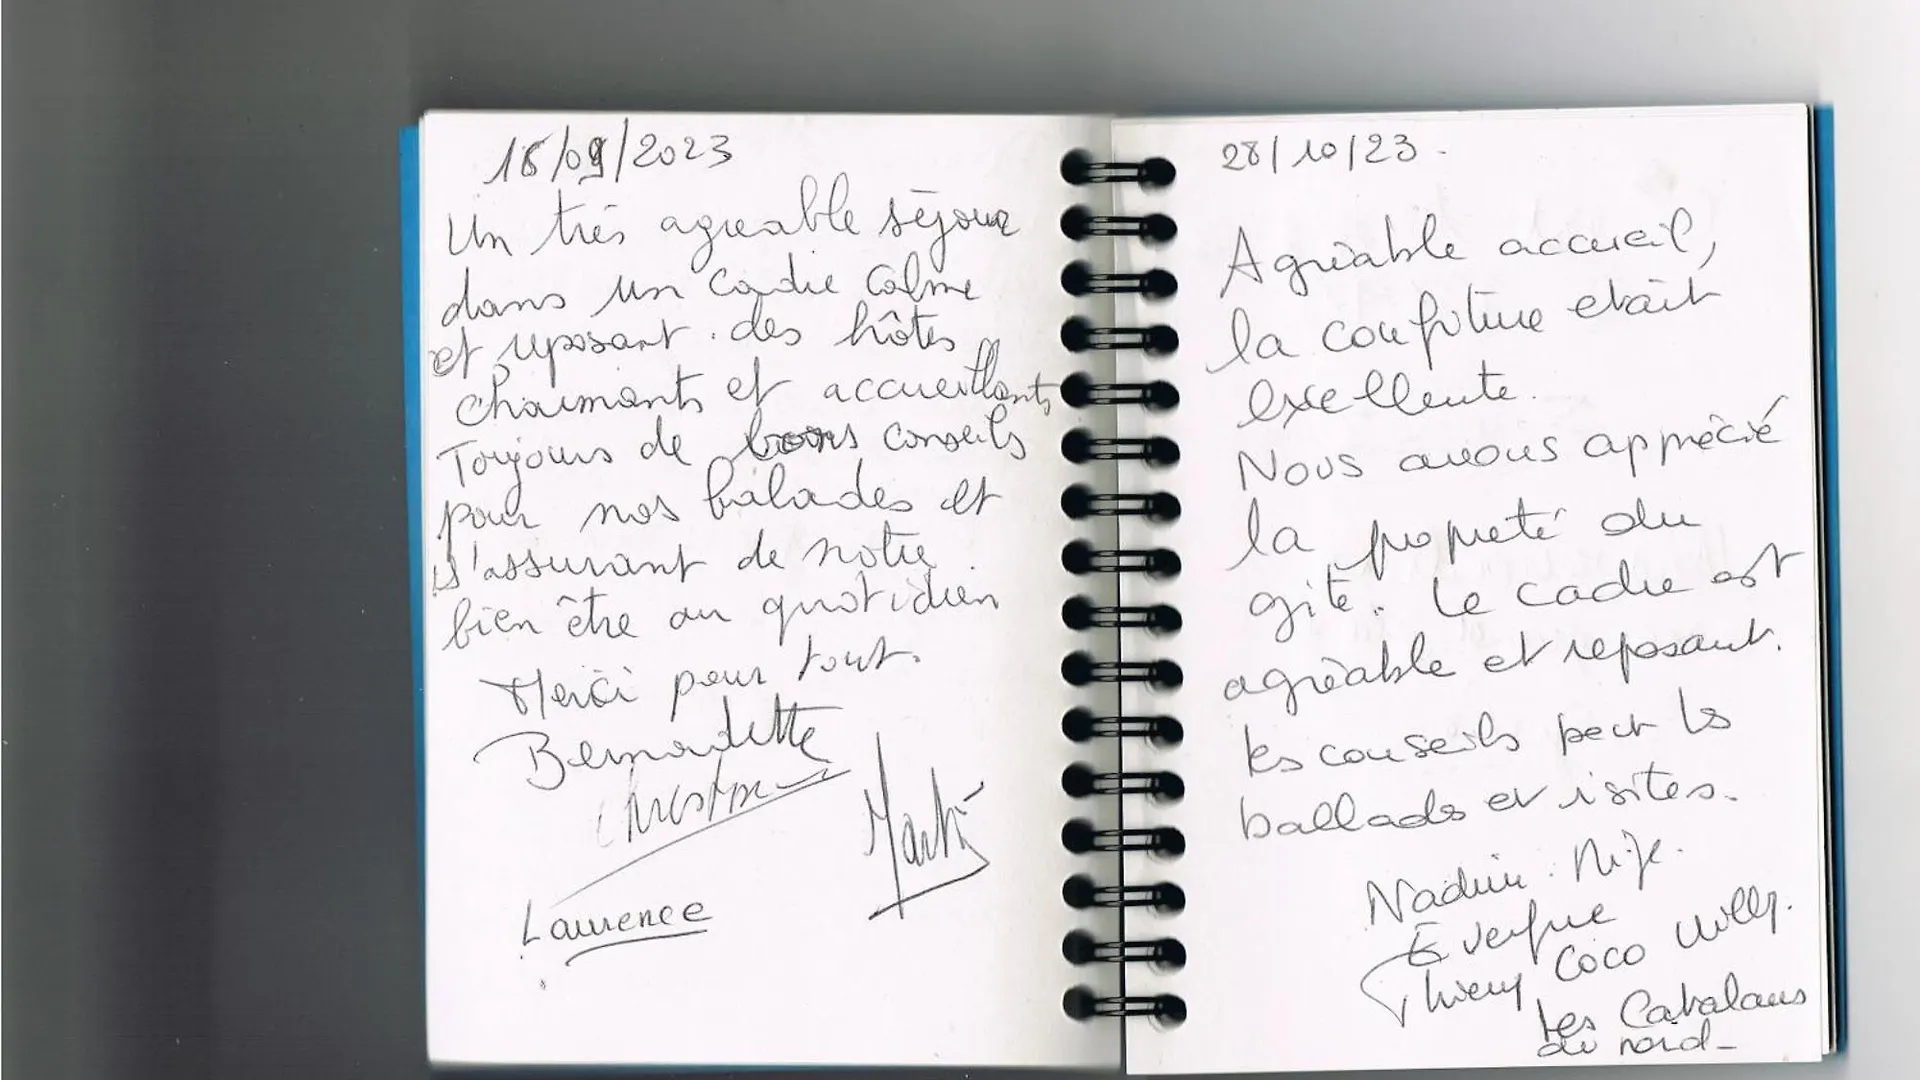 18/09/2023
Un très agréable séjour
dans un cadre calme
et reposant. des hôtes
charmants et accueillants
Toujours de bons conseils
pour nos balades et
s'assurant de notre
bien être au quotidien
Merci pour tout.
Bernadette
Christine
Laurence
28/10/23.
Agréable accueil,
la confiture etait
excellente.
Nous avons apprécié
la propreté du
gite. Le cadre est
agréable et reposant.
les conseils pour les
ballades et visites.
Nadine.
Thierry Coco Willy.
les Catalans
du nord_